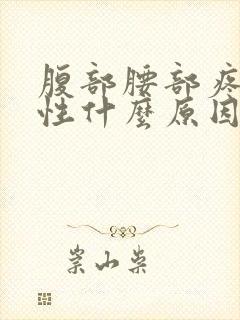 腹部腰部疼
性什麼原因
崇山柴